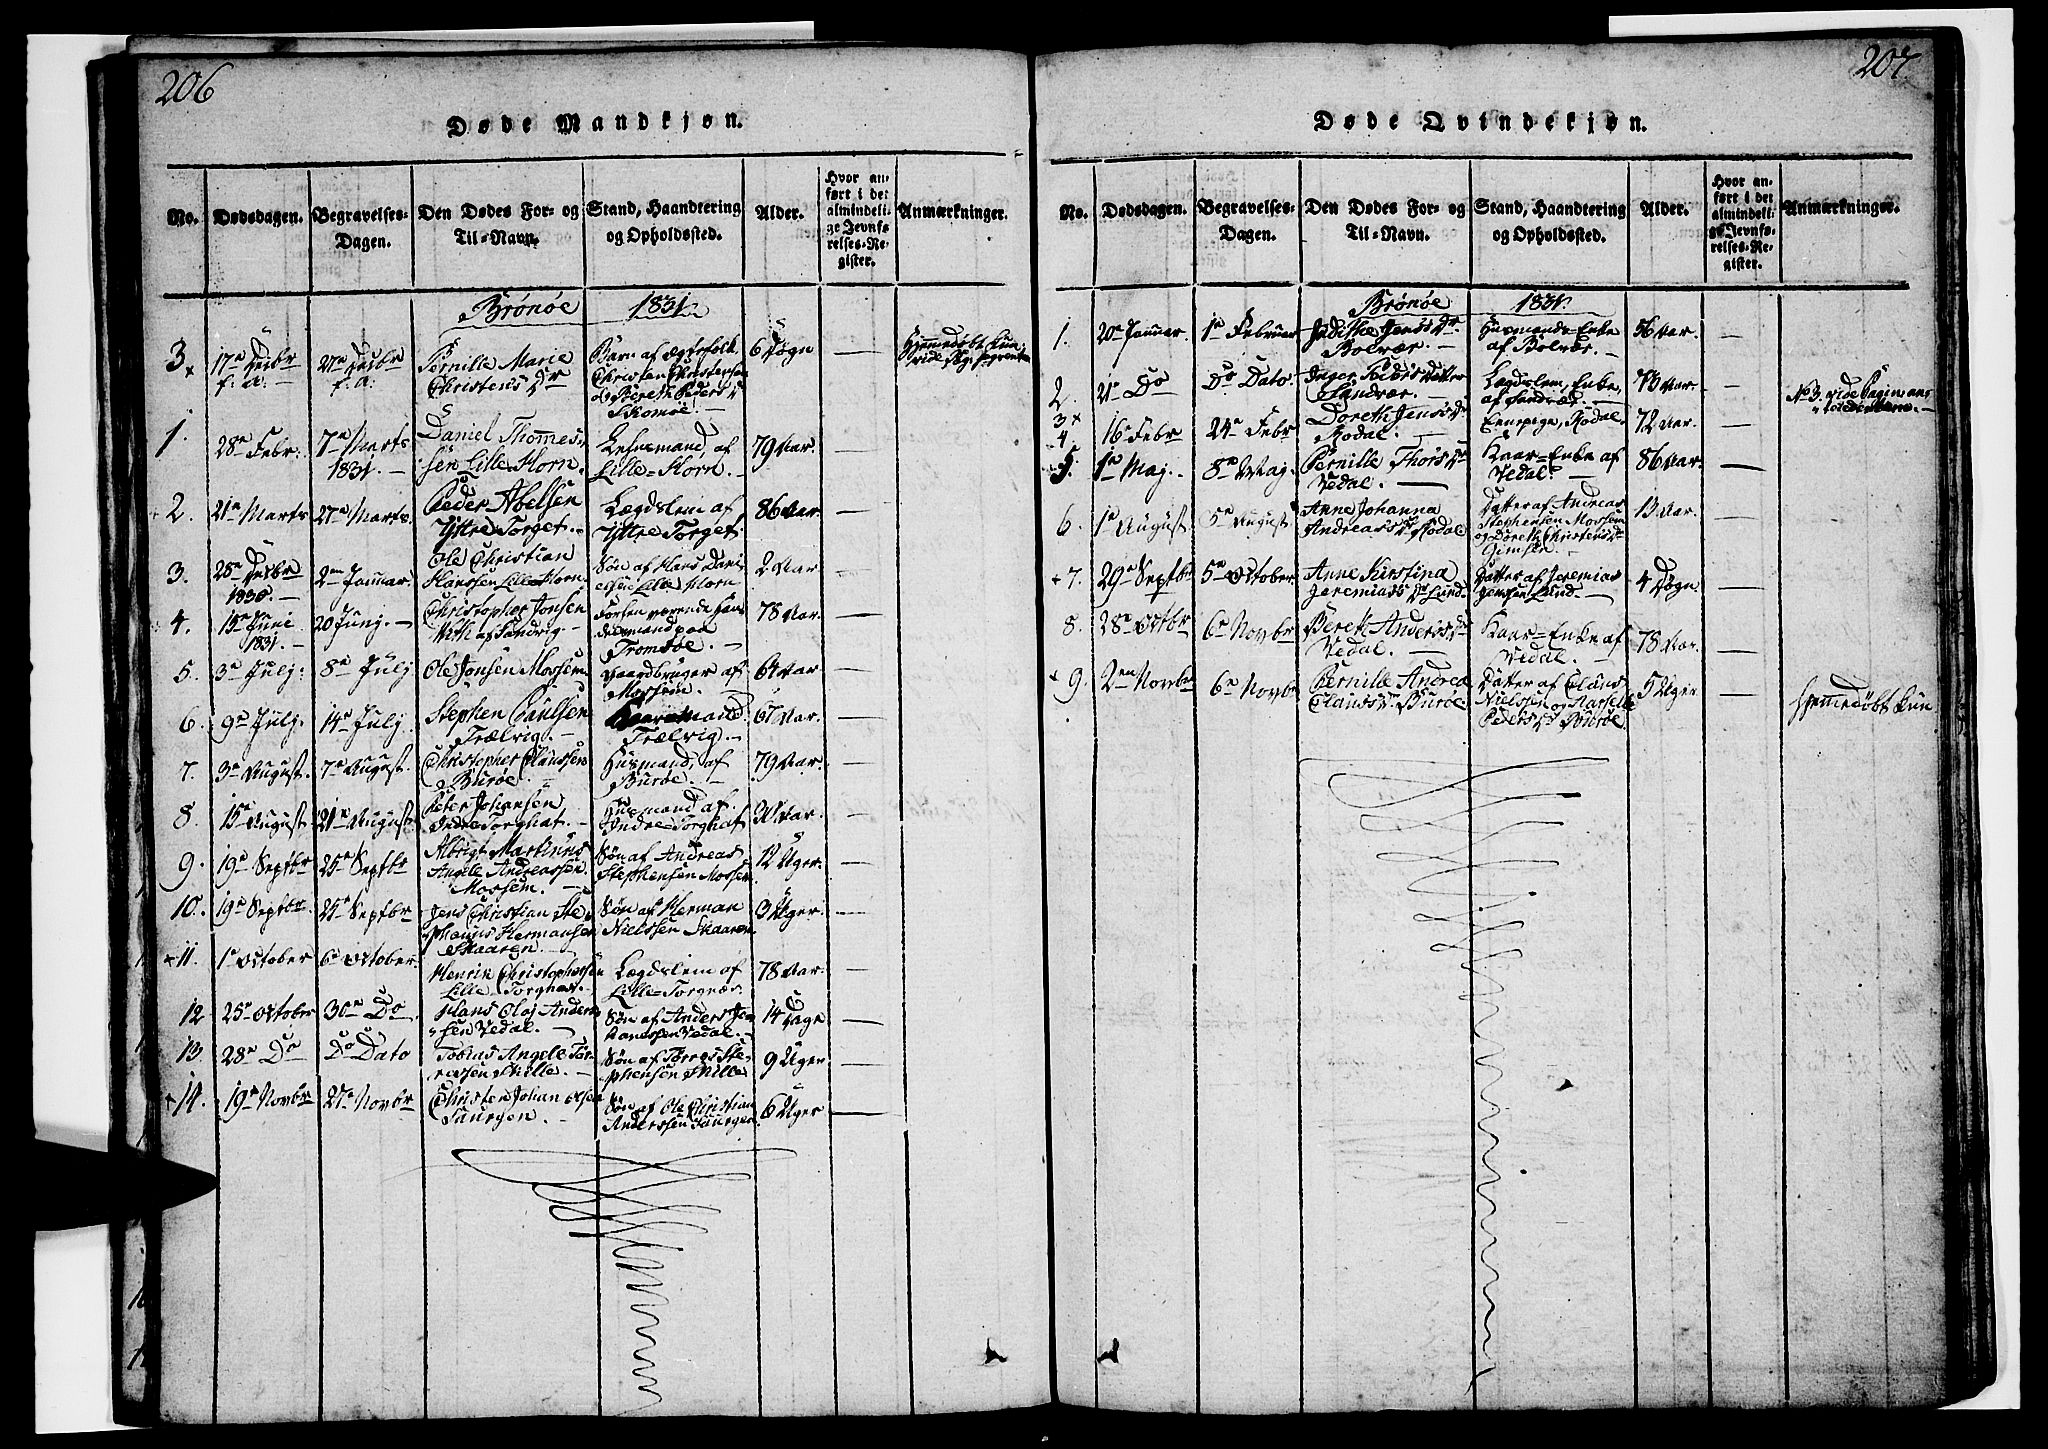 206
Døde Mandkjøn.
No. Dødsdagen. Begravelses-Dagen. Den Dødes For- og Til-Navn. Stand, Haandtering og Opholdssted. Alder. Hvor anført i det almindelige Jevnførelses-Register. Anmærkninger.
Brønøe 1831.
3 17de Decbr f. a: 27de Decbr f. a: Pernille Marie Christens Dr Barn af Ægtefolk Christen Christensen og Bereth Peders Dr Tromøe. 6 Døgn — Hjemmedøbt kun
1. 28de Febr: 7de Marts 1831. Daniel Thommessen Lille Horn. Leilmand, af Lille-Horn. 79 Aar. —
2. 21de Marts 27de Marts. Peder Abelsen Yttre Torget. Lægdslem af Yttre Torget. 86 Aar. —
3. 28de Decbr 1830. 2den Januar. Ole Christian Hanssen Lille Horn. Søn af Hans Danielsen Lille Horn 2 Aar —
4. 15de Juni 1831. 20 Junj. Christopher Jonsen Veth af Sandvig Forhen værende Handelsmand paa Tromsøe. 78 Aar. —
5. 3de Julj: 8de Julj Ole Jonsen Mossem Gaardbruger af Mossem. 64 Aar —
6. 9de Julj. 14de Julj. Stephen Paulsen Trælvig. Kaarmand Trælvig. 67 Aar. —
7. 3de August. 7de August. Christopher Claussen Burøe. Husmand, af Burøe. 79 Aar. —
8. 15de August 21de August Peter Johansen Indre Torghat. Husmand af Indre-Torghat 30 Aar. —
9. 19de Septbr 25de Septbr Albrigt Martinus Angele Andreassen Mossem. Søn af Andreas Stephensen Mossem 12 Uger. —
10. 19de Septbr. 25de Septbr Jens Christian Stephanus Hermansen Skaaren. Søn af Herman Nielssen Skaaren. 3 Uger. —
11. 1ste October 6te October. Henrik Christophersen Lille-Torgnes. Lægdslem af Lille-Torgnæs. 78 Aar. —
12 25de October 30de Do Hans Olaj Andersen Vedal. Søn af Anders Vedal. 14 Dage —
13. 28de Do Do Dato Tobias Angele Torressen Hille. Søn af Torres Stephensen Hille 9 Uger. —
14. 19de Novbr 27de Novbr Christen Johan Olsen Taurgen. Søn af Ole Christian Anderssen Taurgen. 6 Uger —
207
Døde Qvindekjøn.
No. Dødsdagen. Begravelses-Dagen. Den Dødes For- og Til-Navn. Stand, Haandtering og Opholdssted. Alder. Hvor anført i det almindelige Jevnførelses-Register. Anmærkninger.
Brønøe 1831.
1. 20de Januar 1ste Februar Judithe Jens Dr Bolvær. Husmands-Enke af Bolvær. 56 Aar. —
2. 21de Do Do Dato. Inger Peders Datter Sandvær. Lægdslem, Enke, af Sandvær. 78 Aar. — No 3. vide
3
4. 16de Febr 24de Febr Doreth Jens Dr Rodal. Rodal. 72 Aar. —
5. 1ste Maj. 8de Maj. Pernille Thors Dr Vedal. Kaar-Enke af Vedal. 86 Aar. —
6. 1ste August. 5te August Anne Johanna Andreas Dr Rodal Datter af Andreas Stephensen Mossem og Doreth Christens Dr 13 Aar. —
7. 29de Septbr 5te October. Anne Kirstina Jeremias Dr Lund. Datter af Jeremias Jensen Lund. 4 Døgn. —
8. 28de Octbr 6te Novbr Bereth Anders Dr Vedal. Kaar-Enke af Vedal. 78 Aar. —
9. 2den Novbr 6te Novbr Pernille Andrea Claus Dr Burøe. Datter af Claus Nielssen og Peders Dr Burøe. 5 Uger. — Hjemmedøbt kun